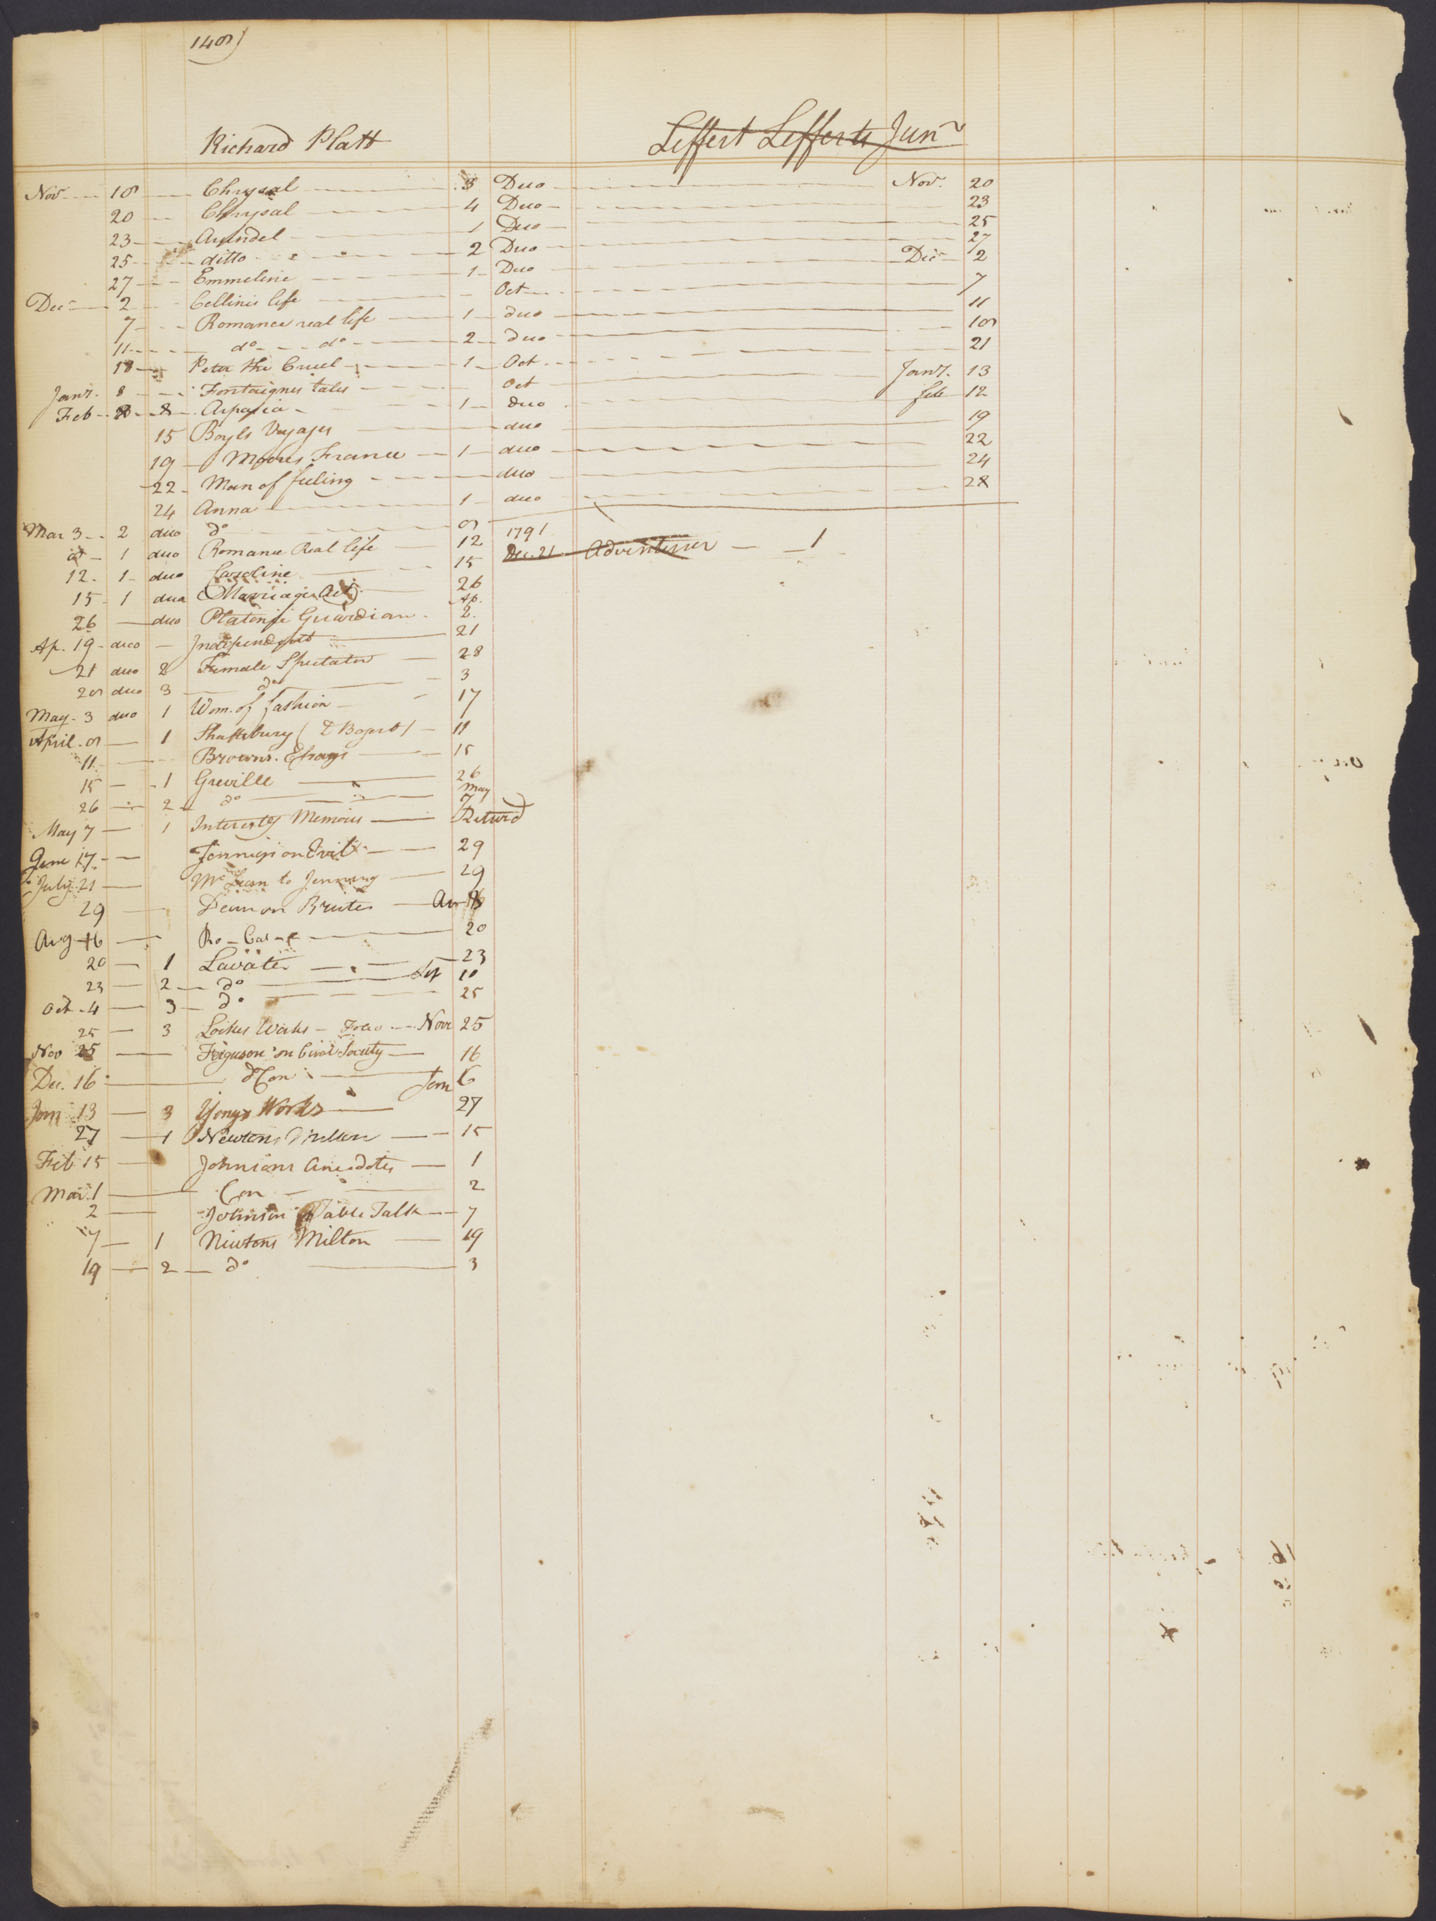 148)
Richard Platt
Leffert Lefferts Junr
Nov. 18 Chrysal 3 Duo Nov. 20
20 Chrysal 4 Duo 23
23 Arundel 1 Duo 25
25 ditto 2 Duo 27
27 Emmeline 1 Duo Decr 2
Decr 2 Cellinis life Oct 7
7 Romance real life 1 duo 11
11 do do 2 duo 18
18 Peter the Cruel 1 Oct 21
Jany. 8 Fontaignes tales Oct Jany. 13
Feb 8 Aspasia 1 duo feb 12
15 Boyls Voyages duo 19
19 Moores France 1 duo 22
22 Man of feeling duo 24
24 Anna 1 duo 28
Mar 3 2 duo do 8
1791
1 duo Romance Real life 12
Dec. 21 Adventurer 1
12 1 duo Caroline 15
15 1 duo Marriage Act 26
26 duo Platonic Guardian Ap. 2
Ap. 19 duo Independent 21
21 duo 2 Female Spectator 28
28 duo 3 do 3
May 3 duo 1 Wom. of fashion 17
April 8 1 Shaftsbury 11
11 Browns Essays 15
15 1 Greville 26
26 2 do May 7
May 7 1 Interestg Memoirs Returd
June 17 Jennings on Evil 29
July 21 Mc Lean to Jennings 29
29 Dean on Brutes Au 16
Aug 16 20
20 1 Lavater 23
23 2 do 10
Oct 4 3 do 25
25 3 Lockes Works Folio Novr 25
Nov 25 Ferguson on Civil Society 16
Dec. 16 Con Jany 6
Jany 13 3 Yongs Works 27
27 1 Newtons Milton 15
Feb 15 Johnsons Anecdotes 1
Mar. 1 Con 2
2 Johnson Table Talk 7
7 1 Newtons Milton 19
19 2 do 3